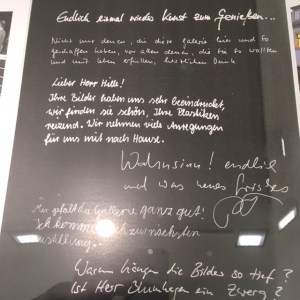 Endlich einmal wieder Kunst zum Genießen...
Nicht nur denen, die diese galerie hier und so
geschaffen haben, vor allem denen, die sie so wollten
und mit leben erfüllen, herzlichen Dank
Lieber Herr Hille!
Ihre Bilder haben uns sehr beeindruckt,
wir finden sie schön, Ihre Plastiken
reizend. Wir nehmen viele Anregungen
für uns mit nach Hause.
Wahnsinn! endlich
mal was neues frisches
Mir gefällt die Gallerie ganz gut!
Ich komme zur nächsten
Ausstellung.
Warum hängen die Bilder so tief?
Ist Herr ein Zwerg?